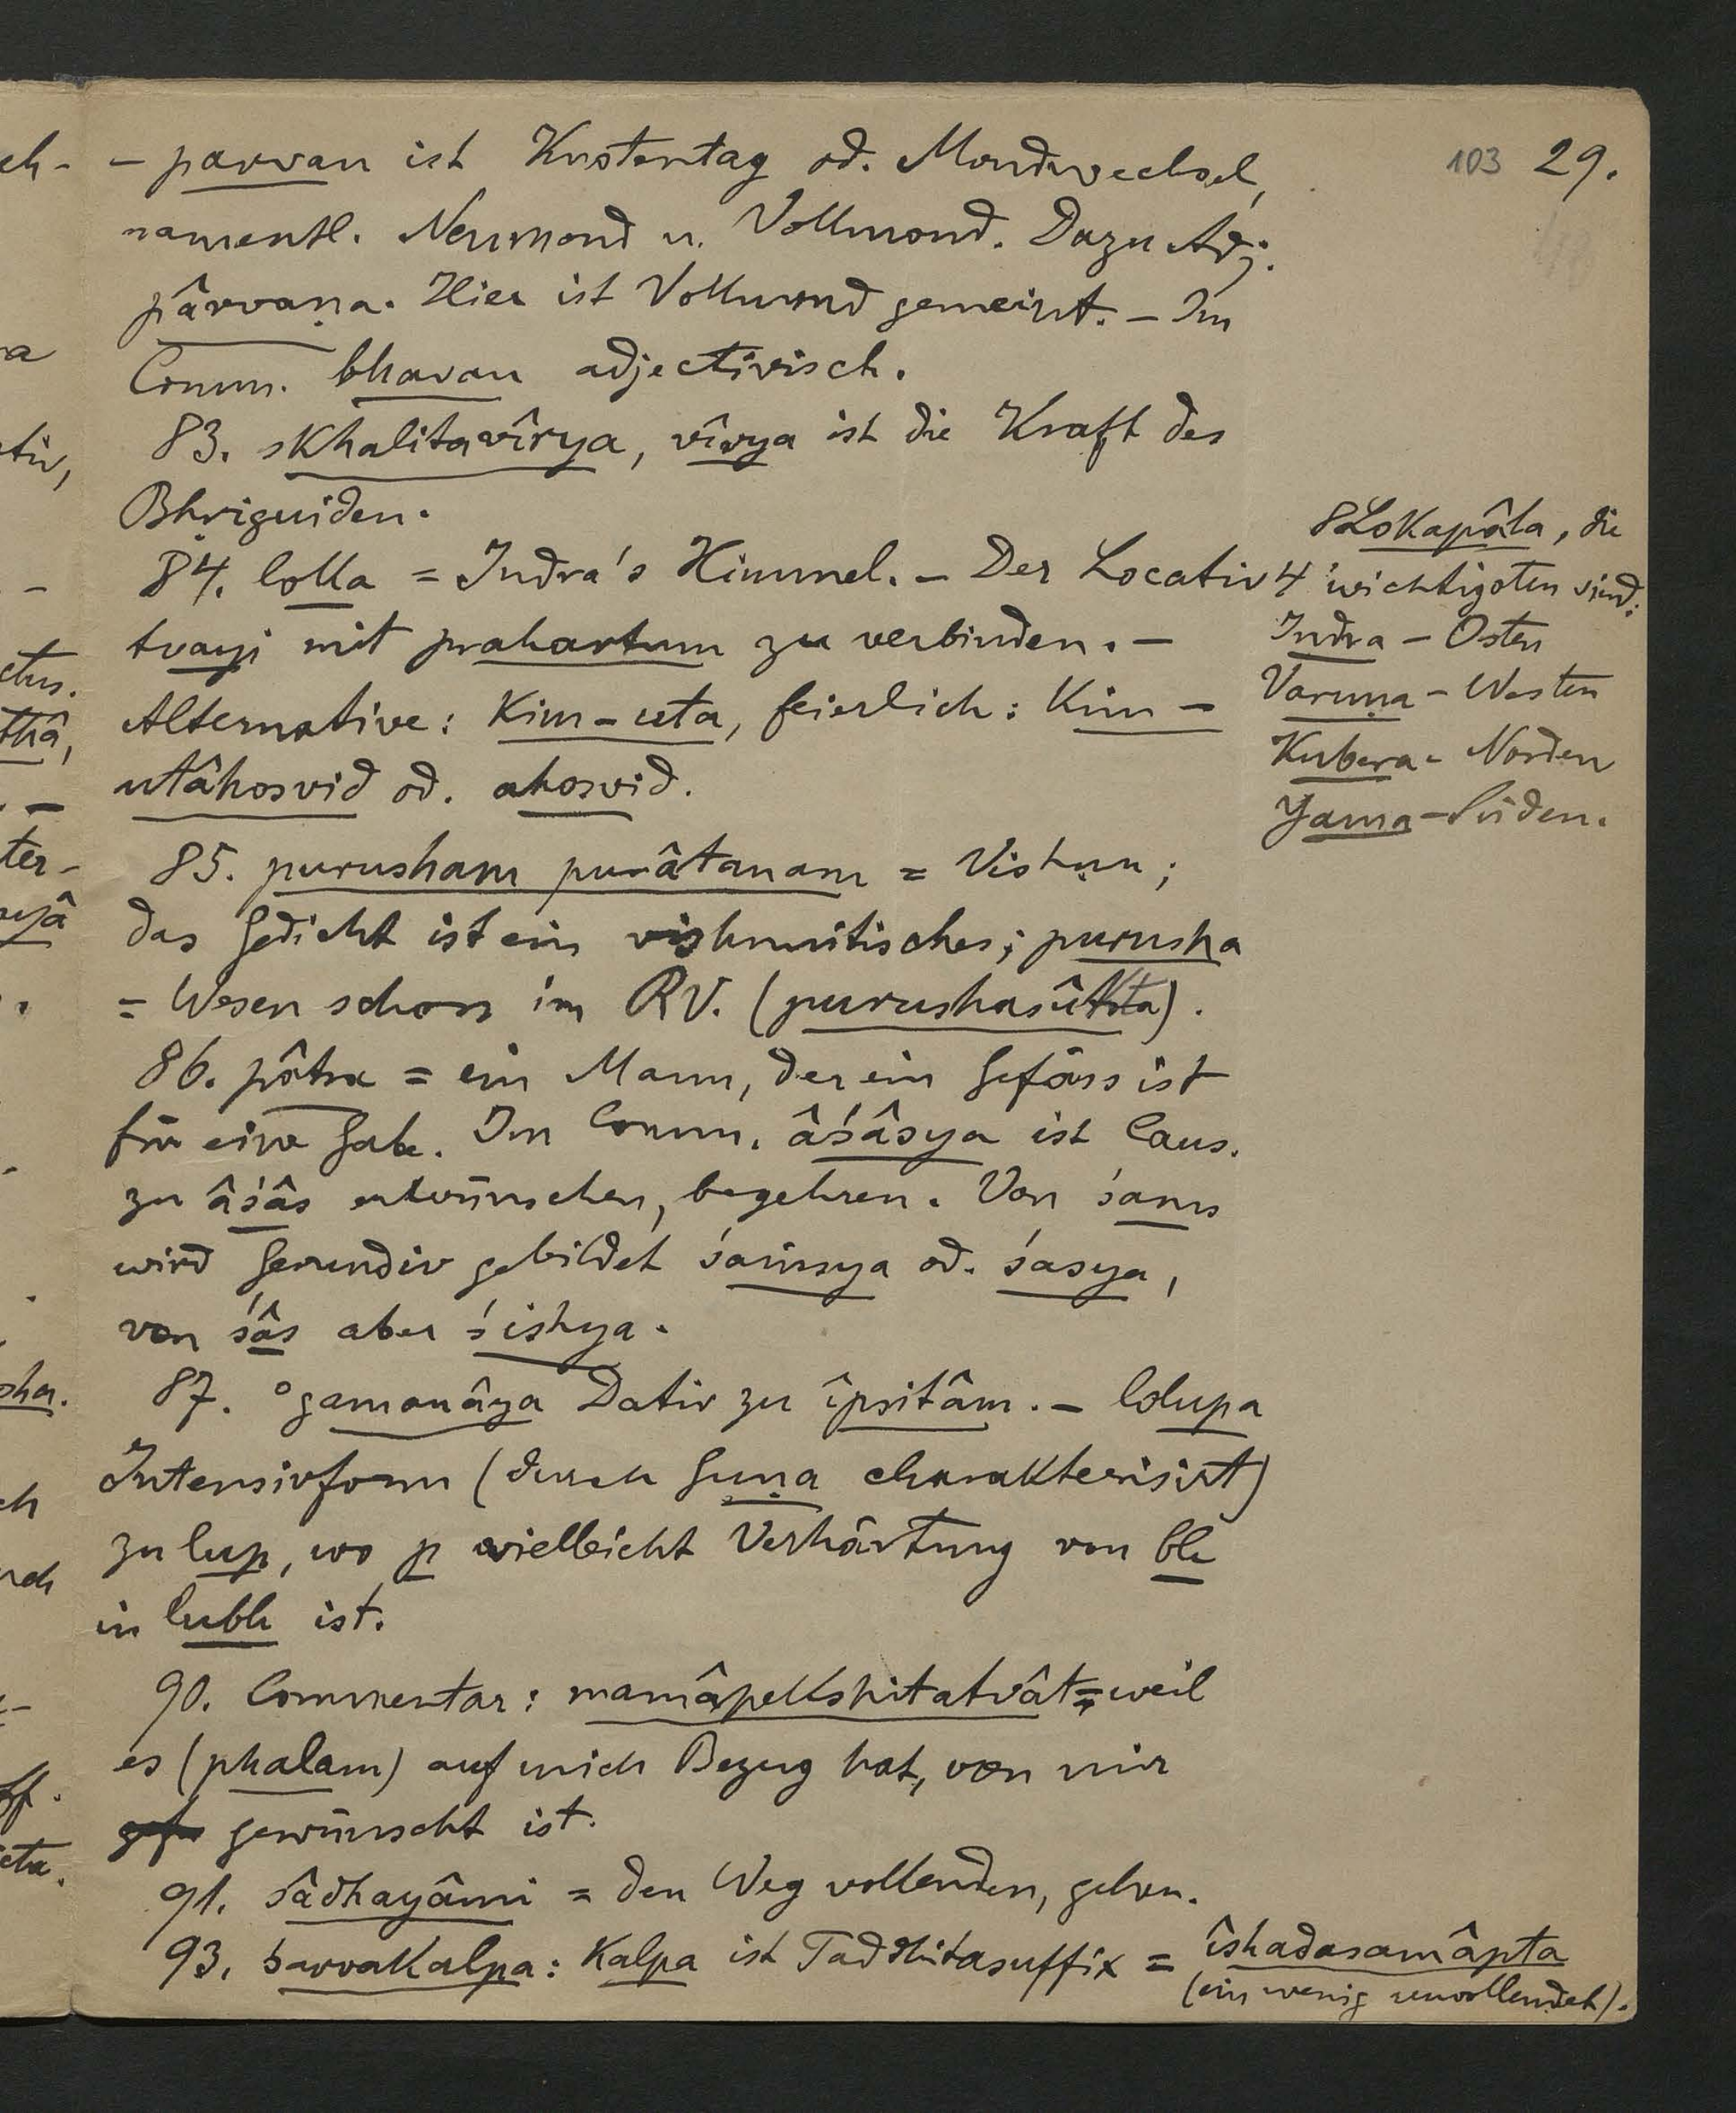 103 29.
- parvan ist Knotentag od. Mondwechsel,
namentl. Neumond u. Vollmond. Dazu Adj.
pârvaṇa. Hier ist Vollmond gemeint. - Im
Comm. bhavan adjectivisch.
83. skhalitavîrya, vîrya ist die Kraft des
Bhṛiguiden.
84. loka = Indra's Himmel. - Der Locativ
tvayi mit prahartum zu verbinden. -
Alternative: kim-uta, feierlich: kim-
utâhosvid od. ahosvid.
8 Lokapâla, die
4 wichtigsten sind:
Indra - Osten
Varuṇa - Westen
Kubera - Norden
Yama - Süden.
85. purusham purâtanam = Vishṇu;
das Gedicht ist ein vishnuitisches; purusha
= Wesen schon im RV. (purushasûkta).
86. pâtra = ein Mann, der ein Gefäss ist
für eine Gabe. Im Comm. âśâsya ist Caus.
zu âśâs erwünschen, begehren. Von śams
wird Gerundiv gebildet śaṁsya od. śasya,
von śâs aber śishya.
87. °gamanâya Dativ zu îpsitâm. - lolupa
Intensivform (durch Guṇa charakterisirt)
zu lup, wo p vielleicht Verhärtung von bh
in lubh ist.
90. Commentar: mamâpekshitatvât = weil
es (phalam) auf mich Bezug hat, von mir
gewünscht ist.
91. sâdhayâmi = den Weg vollenden, gehen.
93. sarvakalpa: kalpa ist Taddhitasuffix = îshadasamâpta
(ein wenig unvollendet).